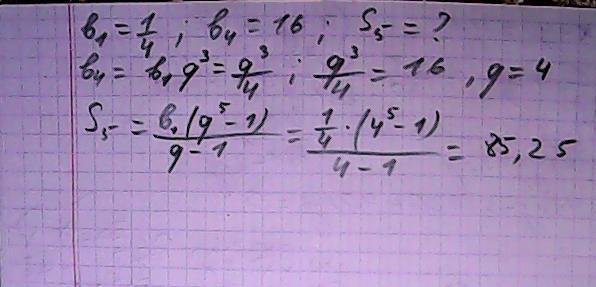 b₁ = 1/4 ; b₄ = 16 ; S₅ = ?
b₄ = b₁ q³ = q³/4 ; q³/4 = 16 , q = 4
S₅ = b₁(q⁵-1)/q-1 = 1/4·(4⁵-1)/4-1 = 85,25